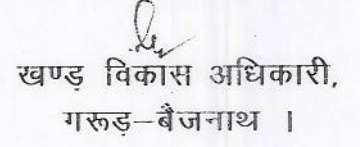 खण्ड विकास अधिकारी,
गरूड़–बैजनाथ ।